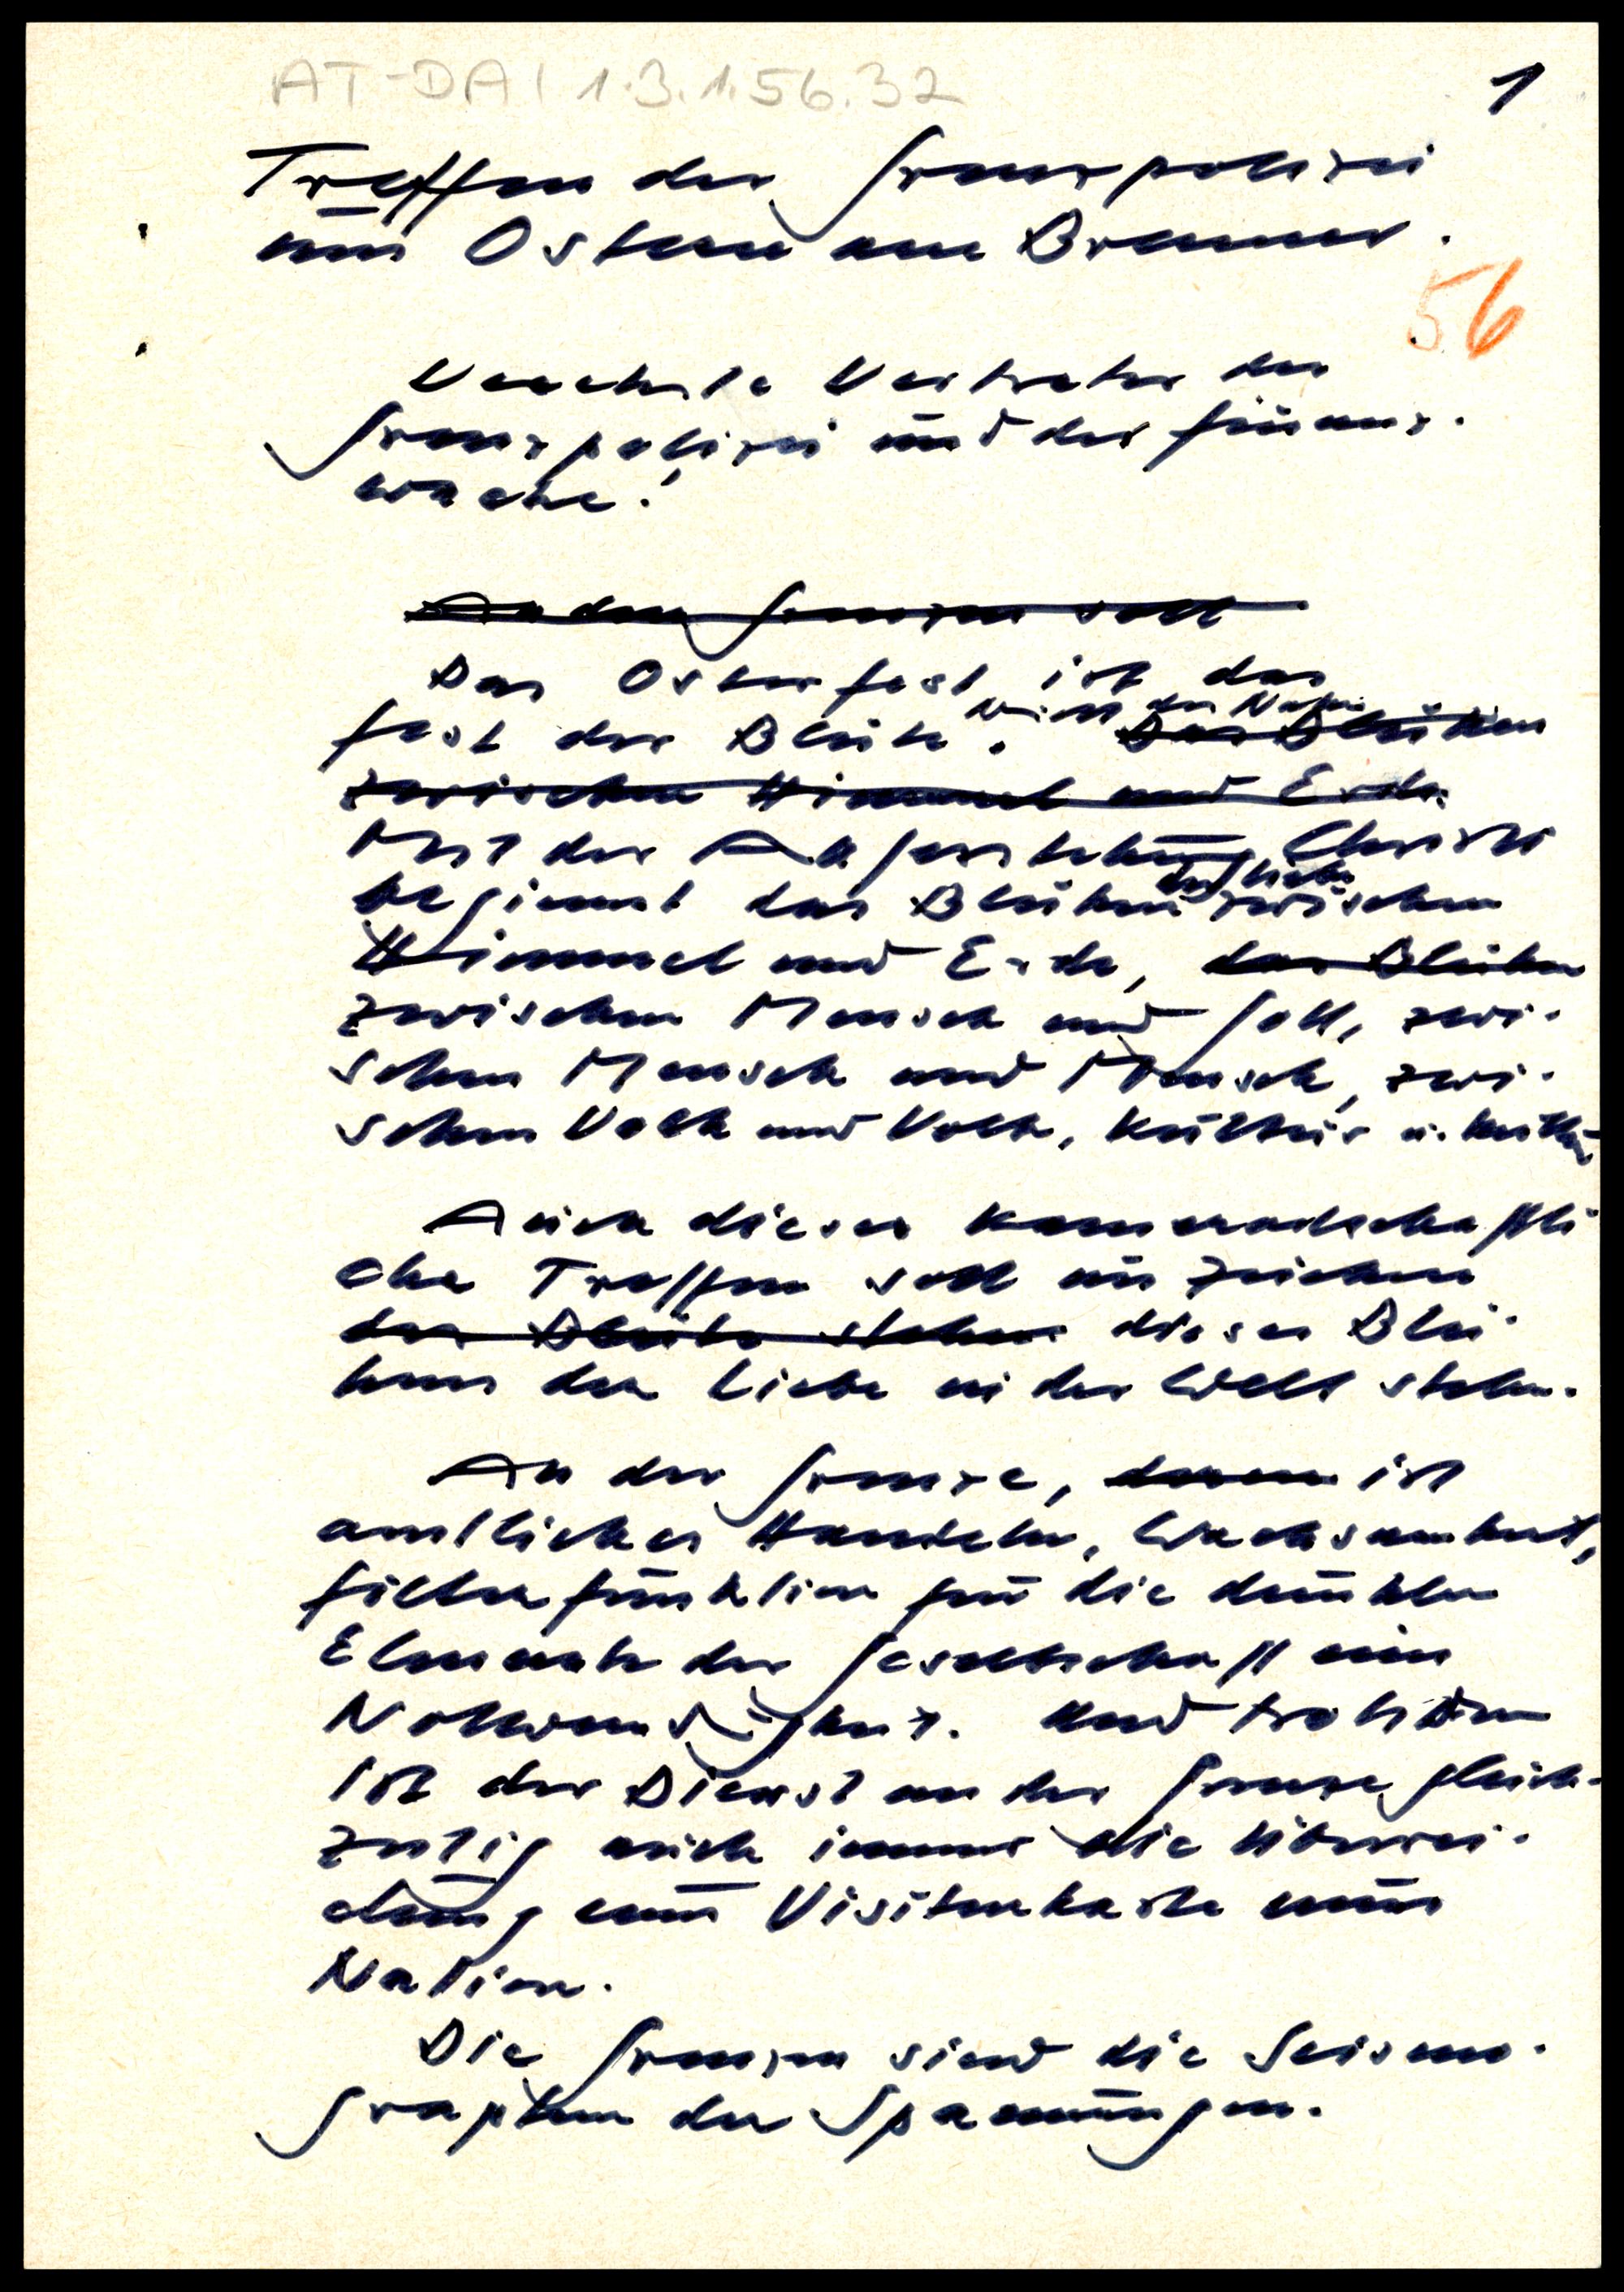 AT-DAI 1.3.1.56.32
1
Treffen der Grenzpolizei
um Ostern am Brenner.
56
Verehrte Vertreter der
Grenzpolizei und der Finanz-
wache!
An den Grenzen soll
Das Osterfest ist das
Fest der Blüte. der Natur Das Blühen
zwischen Himmel und Erde
Mit der Auferstehung Christi
beginnt das Blühen der Liebe zwischen
Himmel und Erde, das Blühen
zwischen Mensch und Gott, zwi-
schen Mensch und Mensch, zwi-
schen Volk und Volk, Kultur u. Kultur
Auch dieses kameradschaftli
che Treffen soll im Zeichen
der Blüte stehen dieses Blü-
hens der Liebe in der Welt stehn.
An der Grenze, ist
amtliches Handeln, Wachsamkeit,
Filterfunktion für die dunklen
Elemente der Gesellschaft eine
Notwendigkeit. Und trotzdem
ist der Dienst an der Grenze gleich-
zeitig auch immer die Überrei-
chung einer Visitenkarte einer
Nation.
Die Grenzen sind die Seismo-
graphen der Spannungen.